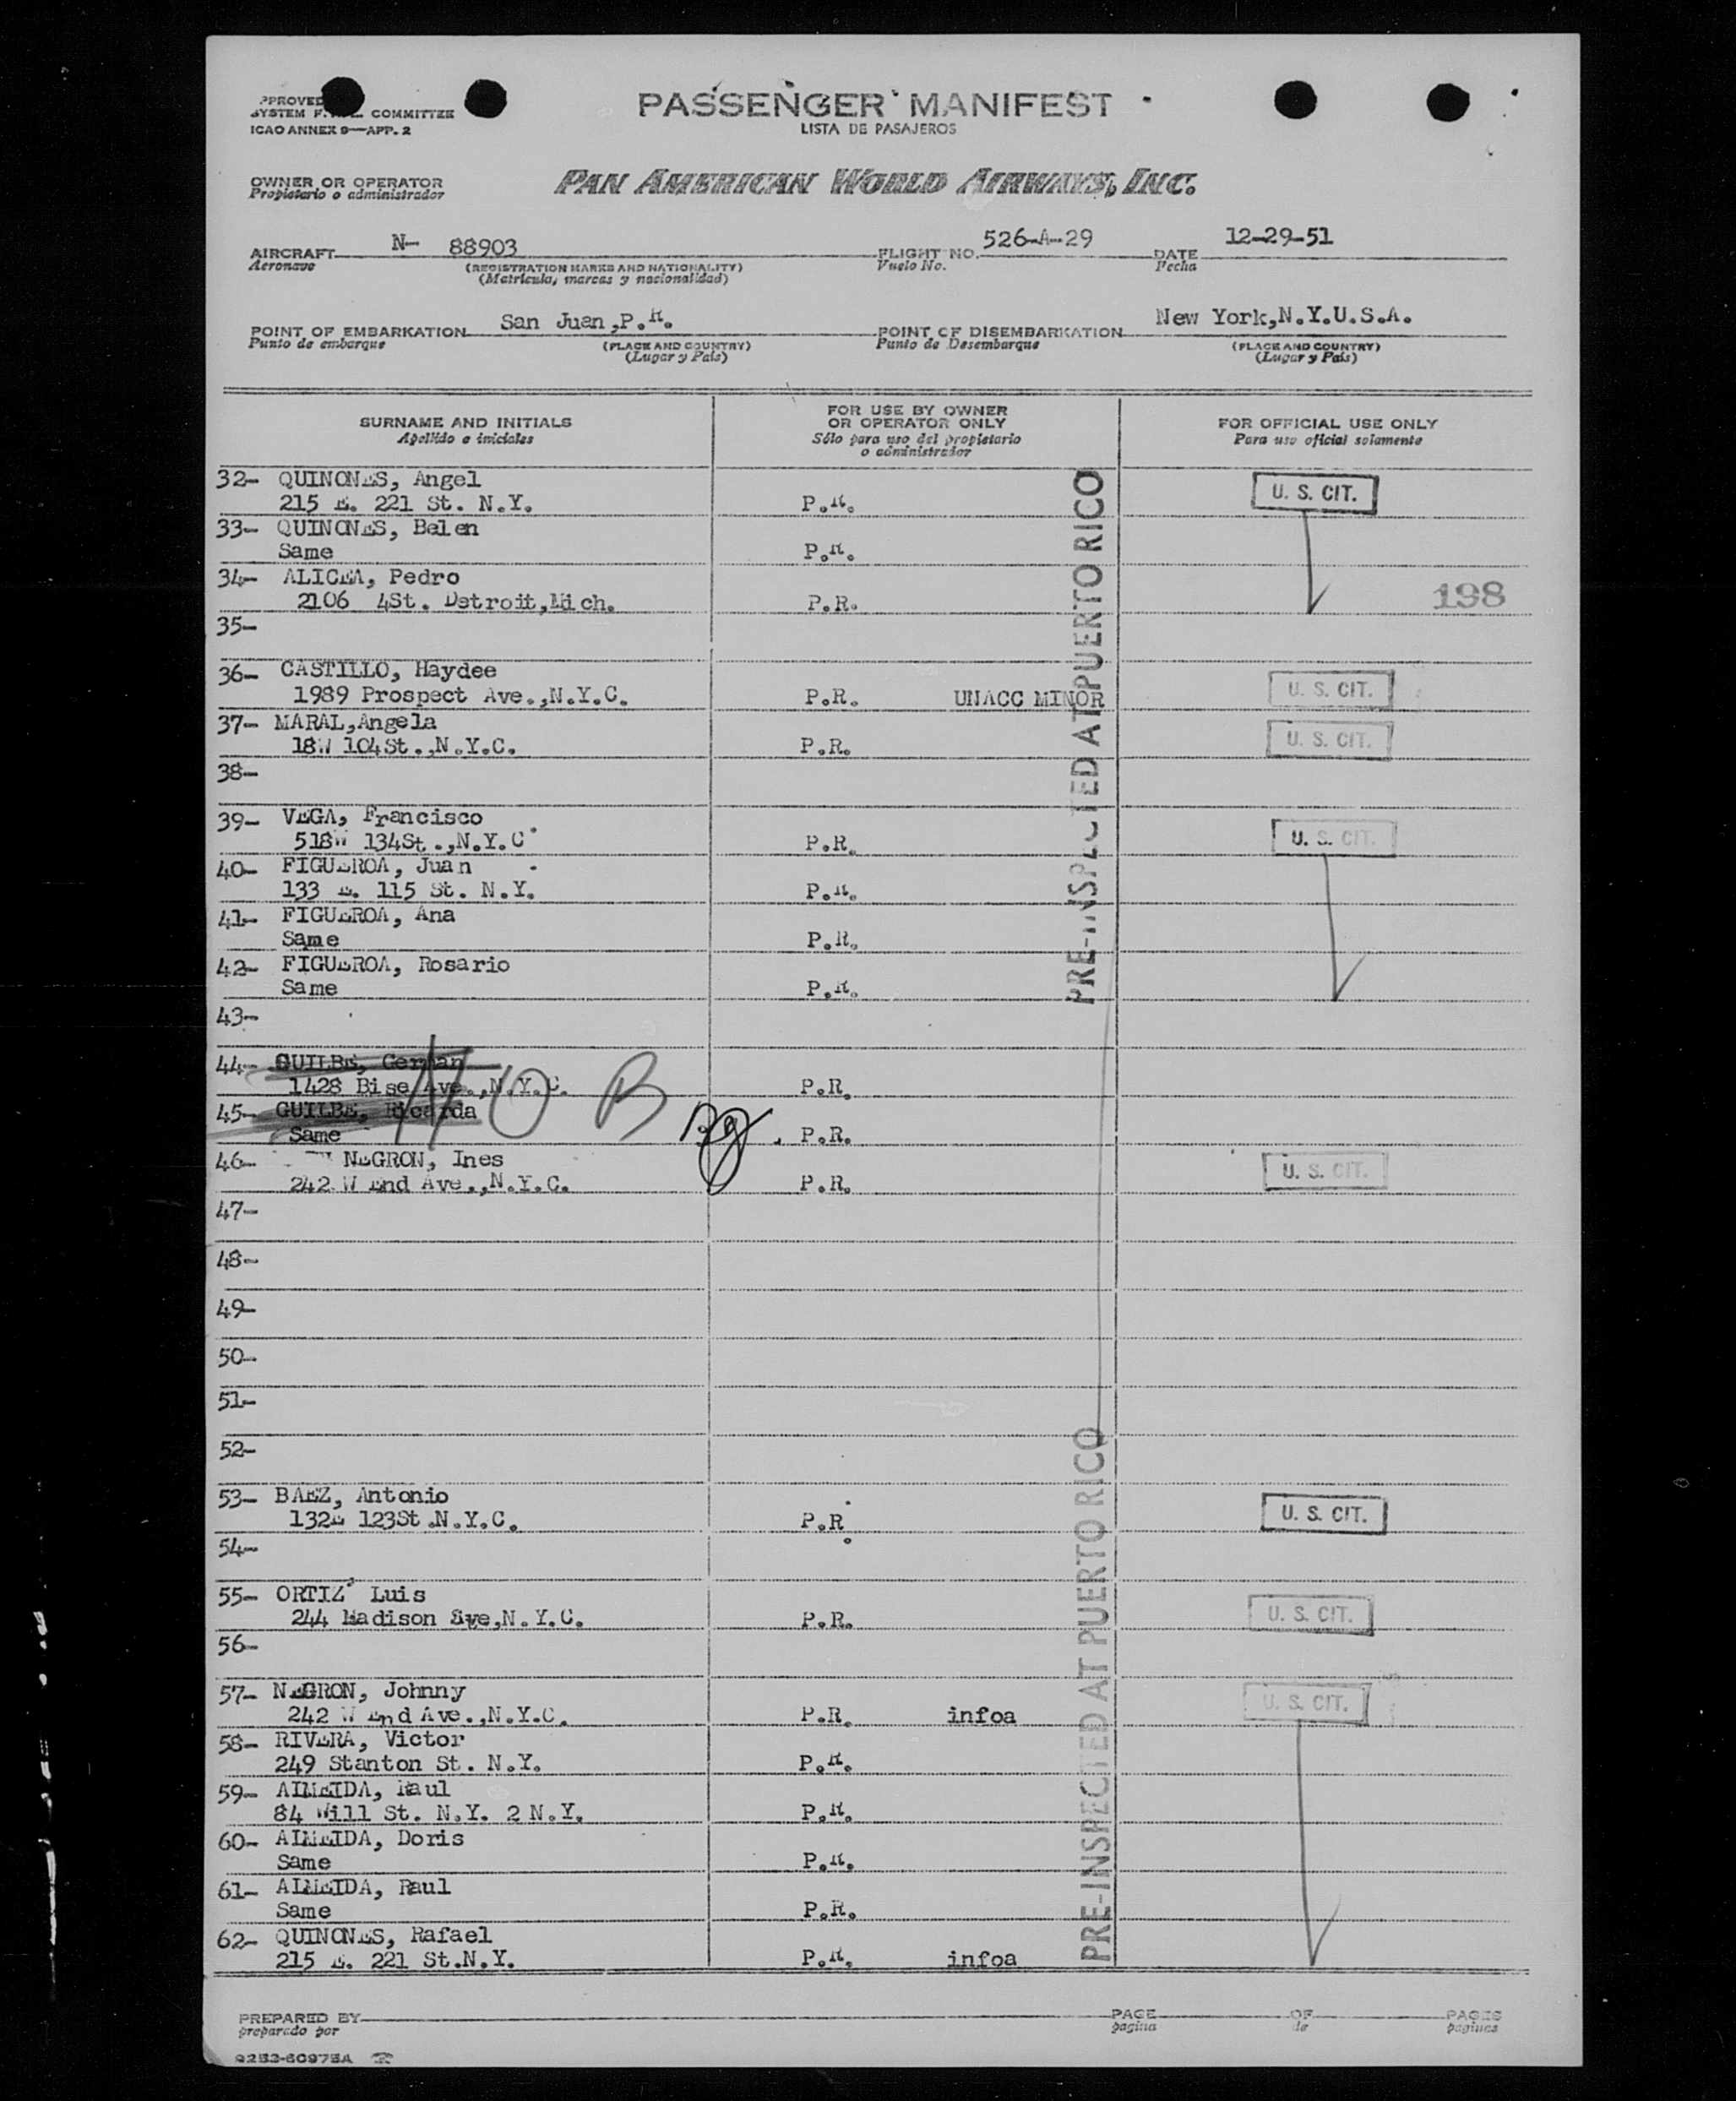 PASSENGER MANIFEST
LISTA DE PASAJEROS
APPROVED
SYSTEM COMMITTEE
ICAO ANNEX 9—APP. 2
OWNER OR OPERATOR
Propietario o administrador
PAN AMERICAN WORLD AIRWAYS, INC.
AIRCRAFT N- 88903 FLIGHT NO. 526-A-29 DATE 12-29-51
Aeronave (REGISTRATION MARKS AND NATIONALITY) Vuelo No. Fecha
(Matrícula, marcas y nacionalidad)
POINT OF EMBARKATION San Juan,P.R. POINT OF DISEMBARKATION New York,N.Y.U.S.A.
Punto de embarque (PLACE AND COUNTRY) Punto de Desembarque (PLACE AND COUNTRY)
(Lugar y País) (Lugar y País)
SURNAME AND INITIALS
Apellido e iniciales
FOR USE BY OWNER
OR OPERATOR ONLY
Sólo para uso del propietario
o administrador
FOR OFFICIAL USE ONLY
Para uso oficial solamente
32- QUINONES, Angel U. S. CIT.
215 E. 221 St. N.Y. P.R.
33- QUINONES, Belen
Same P.R.
34- ALICEA, Pedro
2106 4St. Detroit,Mich. P.R. 198
35-
36- CASTILLO, Haydee
1989 Prospect Ave.,N.Y.C. P.R. UNACC MINOR U. S. CIT.
37- MARAL,Angela
18W 104St.,N.Y.C. P.R. U. S. CIT.
38-
39- VEGA, Francisco
518W 134St.,N.Y.C P.R. U. S. CIT.
40- FIGUEROA, Juan
133 E. 115 St. N.Y. P.R.
41- FIGUEROA, Ana
Same P.R.
42- FIGUEROA, Rosario
Same P.R.
PRE-INSPECTED AT PUERTO RICO
43-
44- GUILBE, German
1428 Bise Ave.,N.Y.C. P.R.
NO B
45- GUILBE, Ricarda
Same P.R.
46- NEGRON, Ines
242 W End Ave.,N.Y.C. P.R. U. S. CIT.
47-
48-
49-
50-
51-
52-
53- BAEZ, Antonio
132E 123St.N.Y.C. P.R. U. S. CIT.
54-
55- ORTIZ Luis
244 Madison Ave,N.Y.C. P.R. U. S. CIT.
56-
57- NEGRON, Johnny
242 W End Ave.,N.Y.C. P.R. infoa U. S. CIT.
58- RIVERA, Victor
249 Stanton St. N.Y. P.R.
59- ALMEIDA, Raul
84 Will St. N.Y. 2 N.Y. P.R.
60- ALMEIDA, Doris
Same P.R.
61- ALMEIDA, Raul
Same P.R.
62- QUINONES, Rafael
215 E. 221 St.N.Y. P.R. infoa
PRE-INSPECTED AT PUERTO RICO
PREPARED BY PAGE OF PAGES
preparado por pagina de paginas